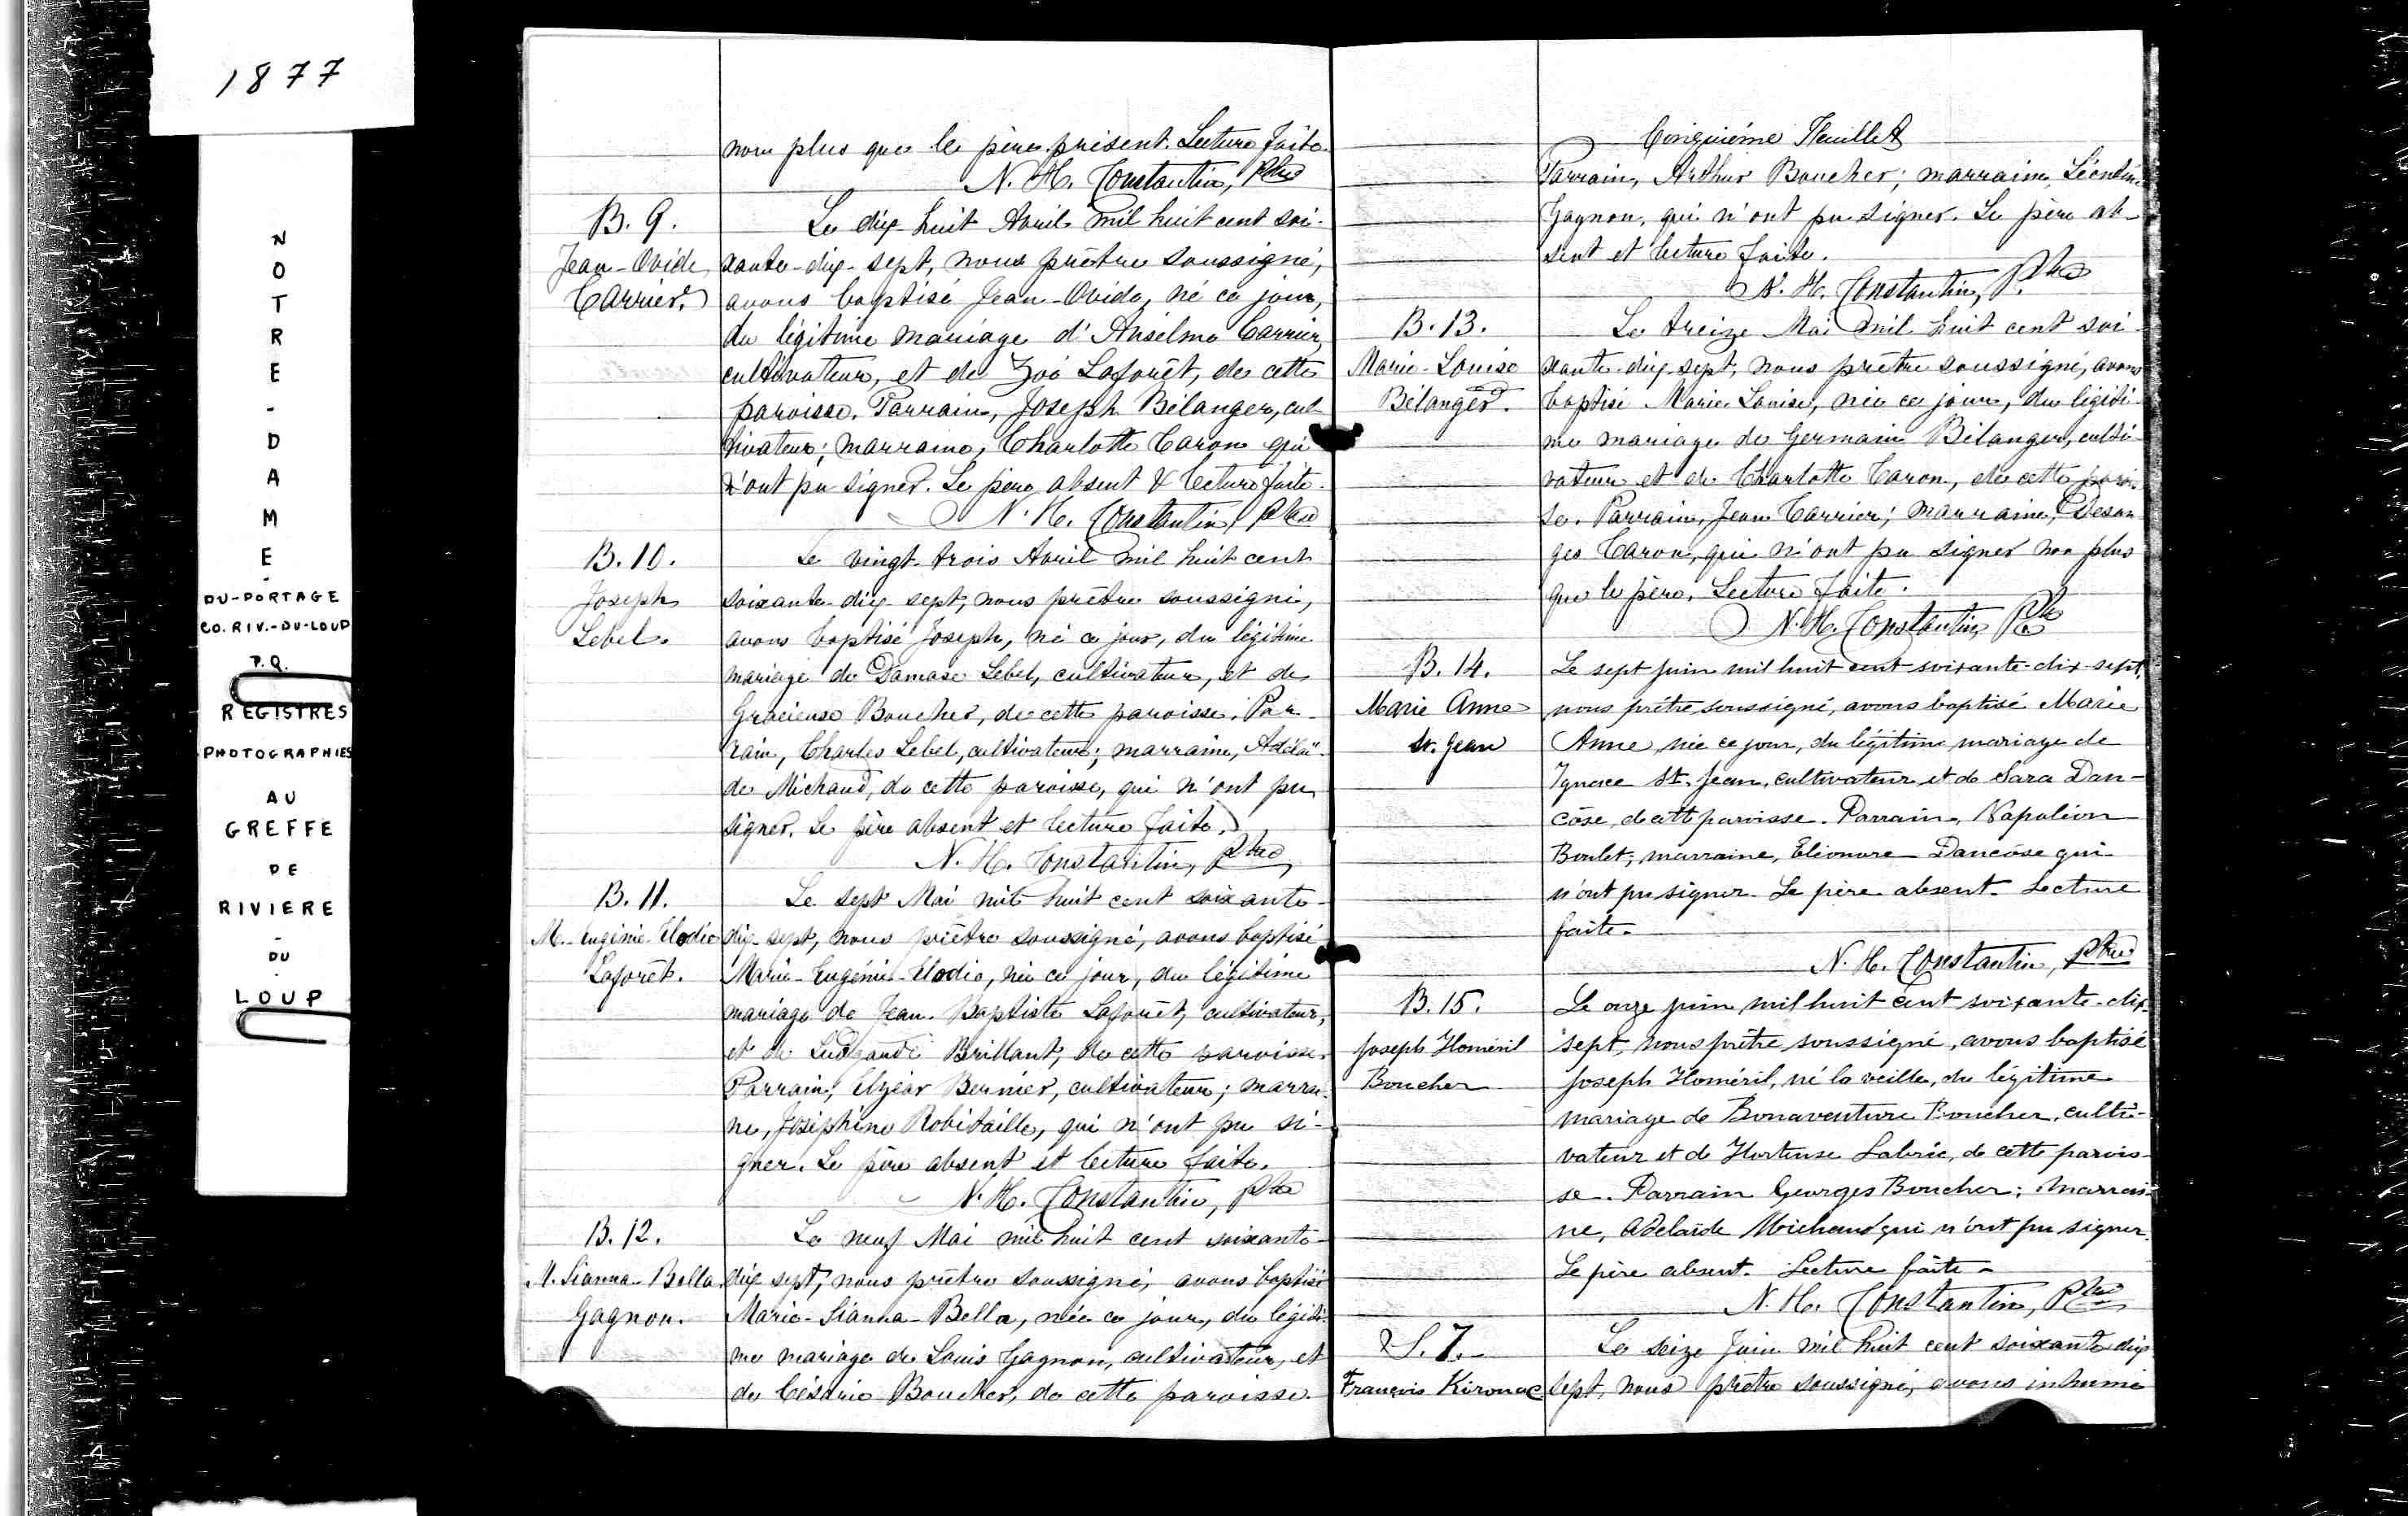 1877
NOTRE-DAME-
DU-PORTAGE
CO. RIV.-DU-LOUP
P.Q.
REGISTRES
PHOTOGRAPHIES
AU
GREFFE
DE
RIVIERE
-
DU
-
LOUP
non plus que le père présent. Lecture faite.
N. H. Constantin, Ptre
B. 9.
Jean-Ovide
Carrier.
Le dix-huit Avril mil huit cent soi-
xante-dix-sept, nous prêtre soussigné,
avons baptisé Jean-Ovide, né ce jour,
du légitime mariage d'Anselme Carrier,
cultivateur, et de Zoé Laforêt, de cette
paroisse. Parrain, Joseph Bélanger, cul-
tivateur; marraine, Charlotte Caron qui
n'ont pu signer. Le père absent & lecture faite.
N. H. Constantin, Ptre
B. 10.
Joseph
Lebel.
Le vingt-trois Avril mil huit cent
soixante-dix-sept, nous prêtre soussigné,
avons baptisé Joseph, né ce jour, du légitime
mariage de Damase Lebel, cultivateur, et de
Gracieuse Boucher, de cette paroisse. Par-
rain, Charles Lebel, cultivateur; marraine, Adélaï-
de Michaud, de cette paroisse, qui n'ont pu
signer. Le père absent et lecture faite.
N. H. Constantin, Ptre
B. 11.
M.-Eugénie-Elodie
Laforêt.
Le sept Mai mil huit cent soixante-
dix-sept, nous prêtre soussigné, avons baptisé
Marie-Eugénie-Elodie, née ce jour, du légitime
mariage de Jean-Baptiste Laforêt, cultivateur,
et de Brillant, de cette paroisse.
Parrain, Elzéar Bernier, cultivateur; marrai-
ne, Joséphine Robitaille, qui n'ont pu si-
gner. Le père absent et lecture faite.
N. H. Constantin, Ptre
B. 12.
M. Sianna-Bella
Gagnon.
Le neuf Mai mil huit cent soixante-
dix sept, nous prêtre soussigné, avons baptisé
Marie-Sianna-Bella, née ce jour, du légiti-
me mariage de Louis Gagnon, cultivateur, et
de Césarie Boucher, de cette paroisse.
Cinquième Feuillet
Parrain, Arthur Boucher; marraine,
Gagnon, qui n'ont pu signer. Le père ab-
sent et lecture faite.
N. H. Constantin, Ptre
B. 13.
Marie-Louise
Bélanger.
Le treize Mai mil huit cent soi-
xante-dix-sept, nous prêtre soussigné, avons
baptisé Marie-Louise, née ce jour, du légiti-
me mariage de Germain Bélanger, culti-
vateur et de Charlotte Caron, de cette parois-
se. Parrain, Jean Carrier; marraine, Desan-
ges Caron, qui n'ont pu signer non plus
que le père. Lecture faite.
N. H. Constantin Ptre
B. 14.
Marie Anne
St. Jean
Le sept juin mil huit cent soixante-dix-sept,
nous prêtre soussigné, avons baptisé Marie
Anne, née ce jour, du légitime mariage de
Ignace St. Jean, cultivateur et de Sara Dan-
cose, de cette paroisse. Parrain, Napoléon
Boulet; marraine, Elionore Dancose qui
n'ont pu signer. Le père absent. Lecture
faite.
N. H. Constantin, Ptre
B. 15.
Joseph Homéril
Boucher
Le onze juin mil huit cent soixante-dix-
sept, nous prêtre soussigné, avons baptisé
Joseph Homéril, né la veille, du légitime
mariage de Bonaventure Boucher, culti-
vateur et de Hortense Labrie, de cette parois-
se. Parrain Georges Boucher; Marrai-
ne, Adelaïde Michaud qui n'ont pu signer.
Le père absent. Lecture faite.
N. H. Constantin, Ptre
S. 7.
François Kirouac
Le seize Juin mil huit cent soixante dix
sept, nous prêtre soussigné, avons inhumé